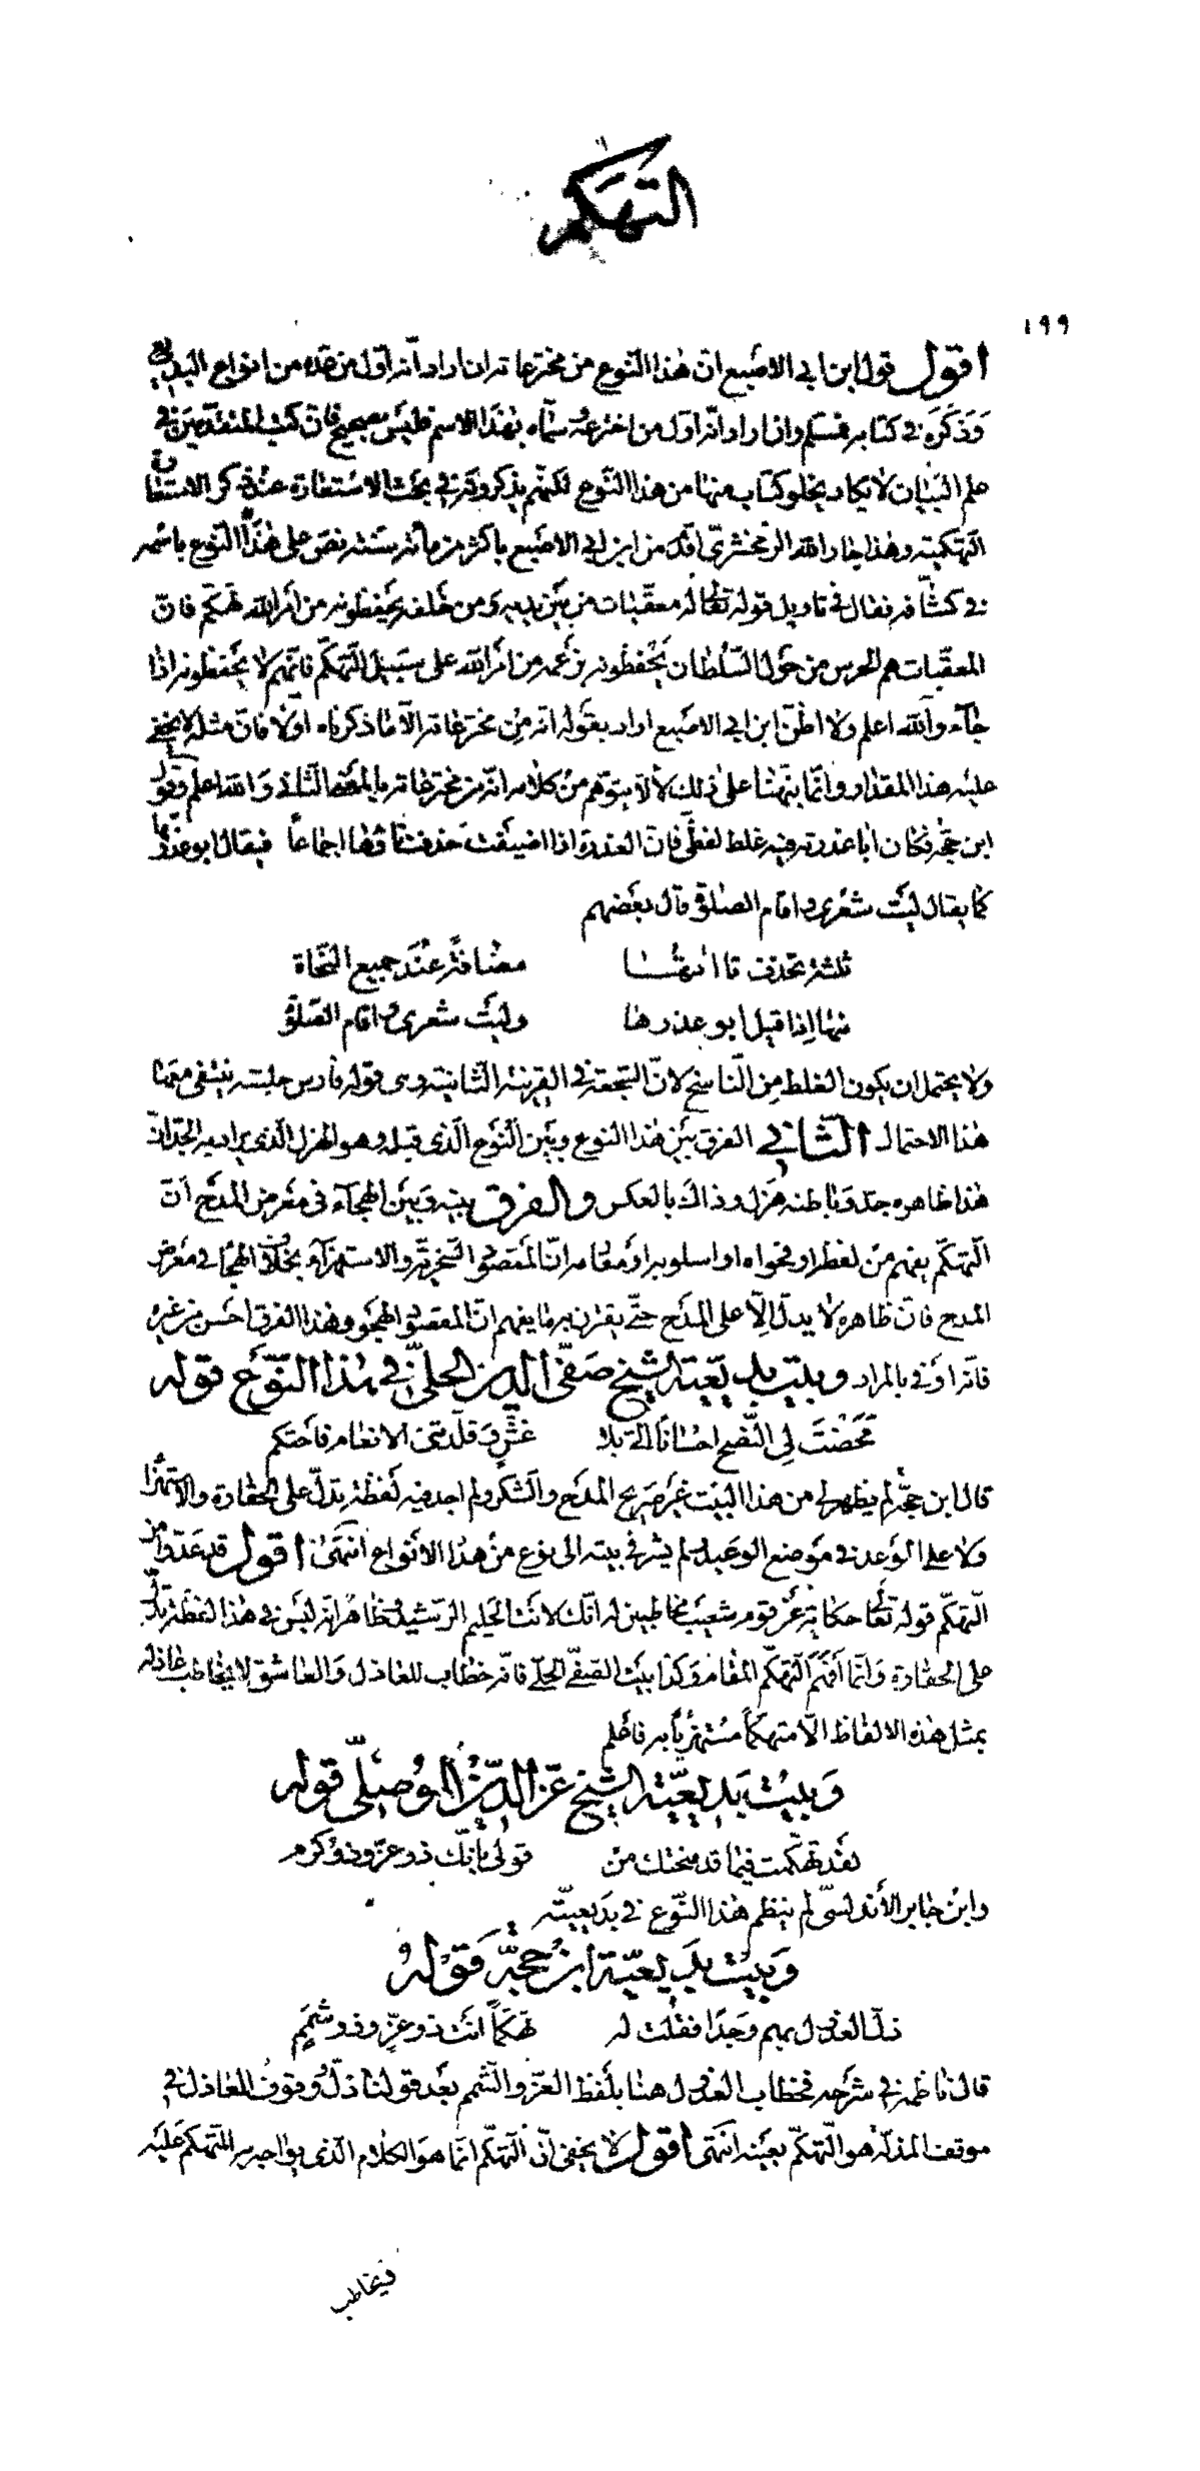 التهكم
١٩٩
اقول قول ابن ابى الاصبع ان هذا النوع من مخترعاته ان اراد انه اول من عده من انواع البديع
وذكره فى كتابه فمسلم وان اراد انه اول من اخترعه وسماه بهذا الاسم فليس بصحيح فان كتب المتقدمين فى
علم البيان لا يكاد يخلو كتاب منها من هذا النوع لكنهم يذكرونه فى بحث الاستعارة عند ذكر الاستعارة
التهكمية وهذا جار الله الزمخشرى اقدم من ابن ابى الاصبع باكثر من مائة سنة نص على هذا النوع باسمه
فى كشافه فقال فى تاويل قوله تعالى له معقبات من بين يديه ومن خلفه يحفظونه من امر الله تهكم فان
المعقبات هم الحرس من حول السلطان يحفظونه بزعمه من امر الله على سبيل التهكم فانهم لا يحفظونه اذا
جآء والله اعلم ولا اظن ابن ابى الاصبع اراد بقوله انه من مخترعاته الا ما ذكرناه اولا فان مثله لا يخفى
عليه هذا المقدار وانما نبهنا على ذلك لئلا يتوهم من كلامه انه من مخترعاته بالمعنى الثانى والله اعلم وقول
ابن حجة فكان ابا عذرته فيه غلط لفظى فان العذرة اذا اضيفت حذفت تاؤها اجماعاً فيقال ابو عذرها
كما يقال ليت شعرى واقام الصلوة قال بعضهم
ثلثة تحذف تاءاتها مضافة عند جميع النحاة
منها اذا قيل ابو عذرها وليت شعرى واقام الصلوة
ولا يحتمل ان يكون الغلط من الناسخ لان السجعة فى القرينة الثانية وهى قوله فارس حلبته ينتفى معها
هذا الاحتمال الثانى الفرق بين هذا النوع وبين النوع الذى قبله وهو الهزل الذى يراد به الجد ان
هذا ظاهره جد وباطنه هزل وذاك بالعكس والفرق بينه وبين الهجآء فى معرض المدح ان
التهكم يفهم من لفظه او فحواه او اسلوبه او مقامه ان المقصود السخرية والاستهزآء بخلاف الهجا فى معرض
المدح فان ظاهره لا يدل الا على المدح حتى يقترن به ما يفهم ان المقصود الهجو وهذا الفرق احسن من غيره
فانه اوفى بالمراد وبيت بديعية الشيخ صفى الدين الحلى فى هذا النوع قوله
محضت لى النصح احسانا الى بلا غش وقلدتنى الانعام فاحتكم
قال ابن حجة لم يظهر لى من هذا البيت غير صريح المدح والشكر ولم اجد فيه لفظة تدل على الحقارة والاستهزا
ولا على الوعد فى موضع الوعيد ولم يشر فى بيته الى نوع من هذه الانواع انتهى اقول قد عدوا من
التهكم قوله تعالى حكاية عن قوم شعيب مخاطبين له انك لانت الحليم الرشيد وظاهر انه ليس فى هذا لفظة تدل
على الحقارة وانما افهم التهكم المقام وكذا بيت الصفى الحلى فانه خطاب للعاذل والعاشق لا يخاطب عاذله
بمثل هذه الالفاظ الا متهكماً مستهزياً به فاعلم
وبيت بديعية الشيخ عز الدين الموصلى قوله
لقد تهكمت فيما قد منحتك من قولى بانك ذو عز وذو كرم
وابن جابر الأندلسى لم ينظم هذا النوع فى بديعيته
وبيت بديعية ابن حجة قوله
ذل العذول بهم وجدا فقلت له تهكماً انت ذو عز وذو شمم
قال ناظمه فى شرحه فخطاب العذول هنا بلفظ العز والشمم بعد قولنا ذل وقوف للعاذل فى
موقف المذلة هو التهكم بعينه انتهى اقول لا يخفى ان التهكم انما هو الكلام الذى يواجه به المتهكم عليه
فيخاطب